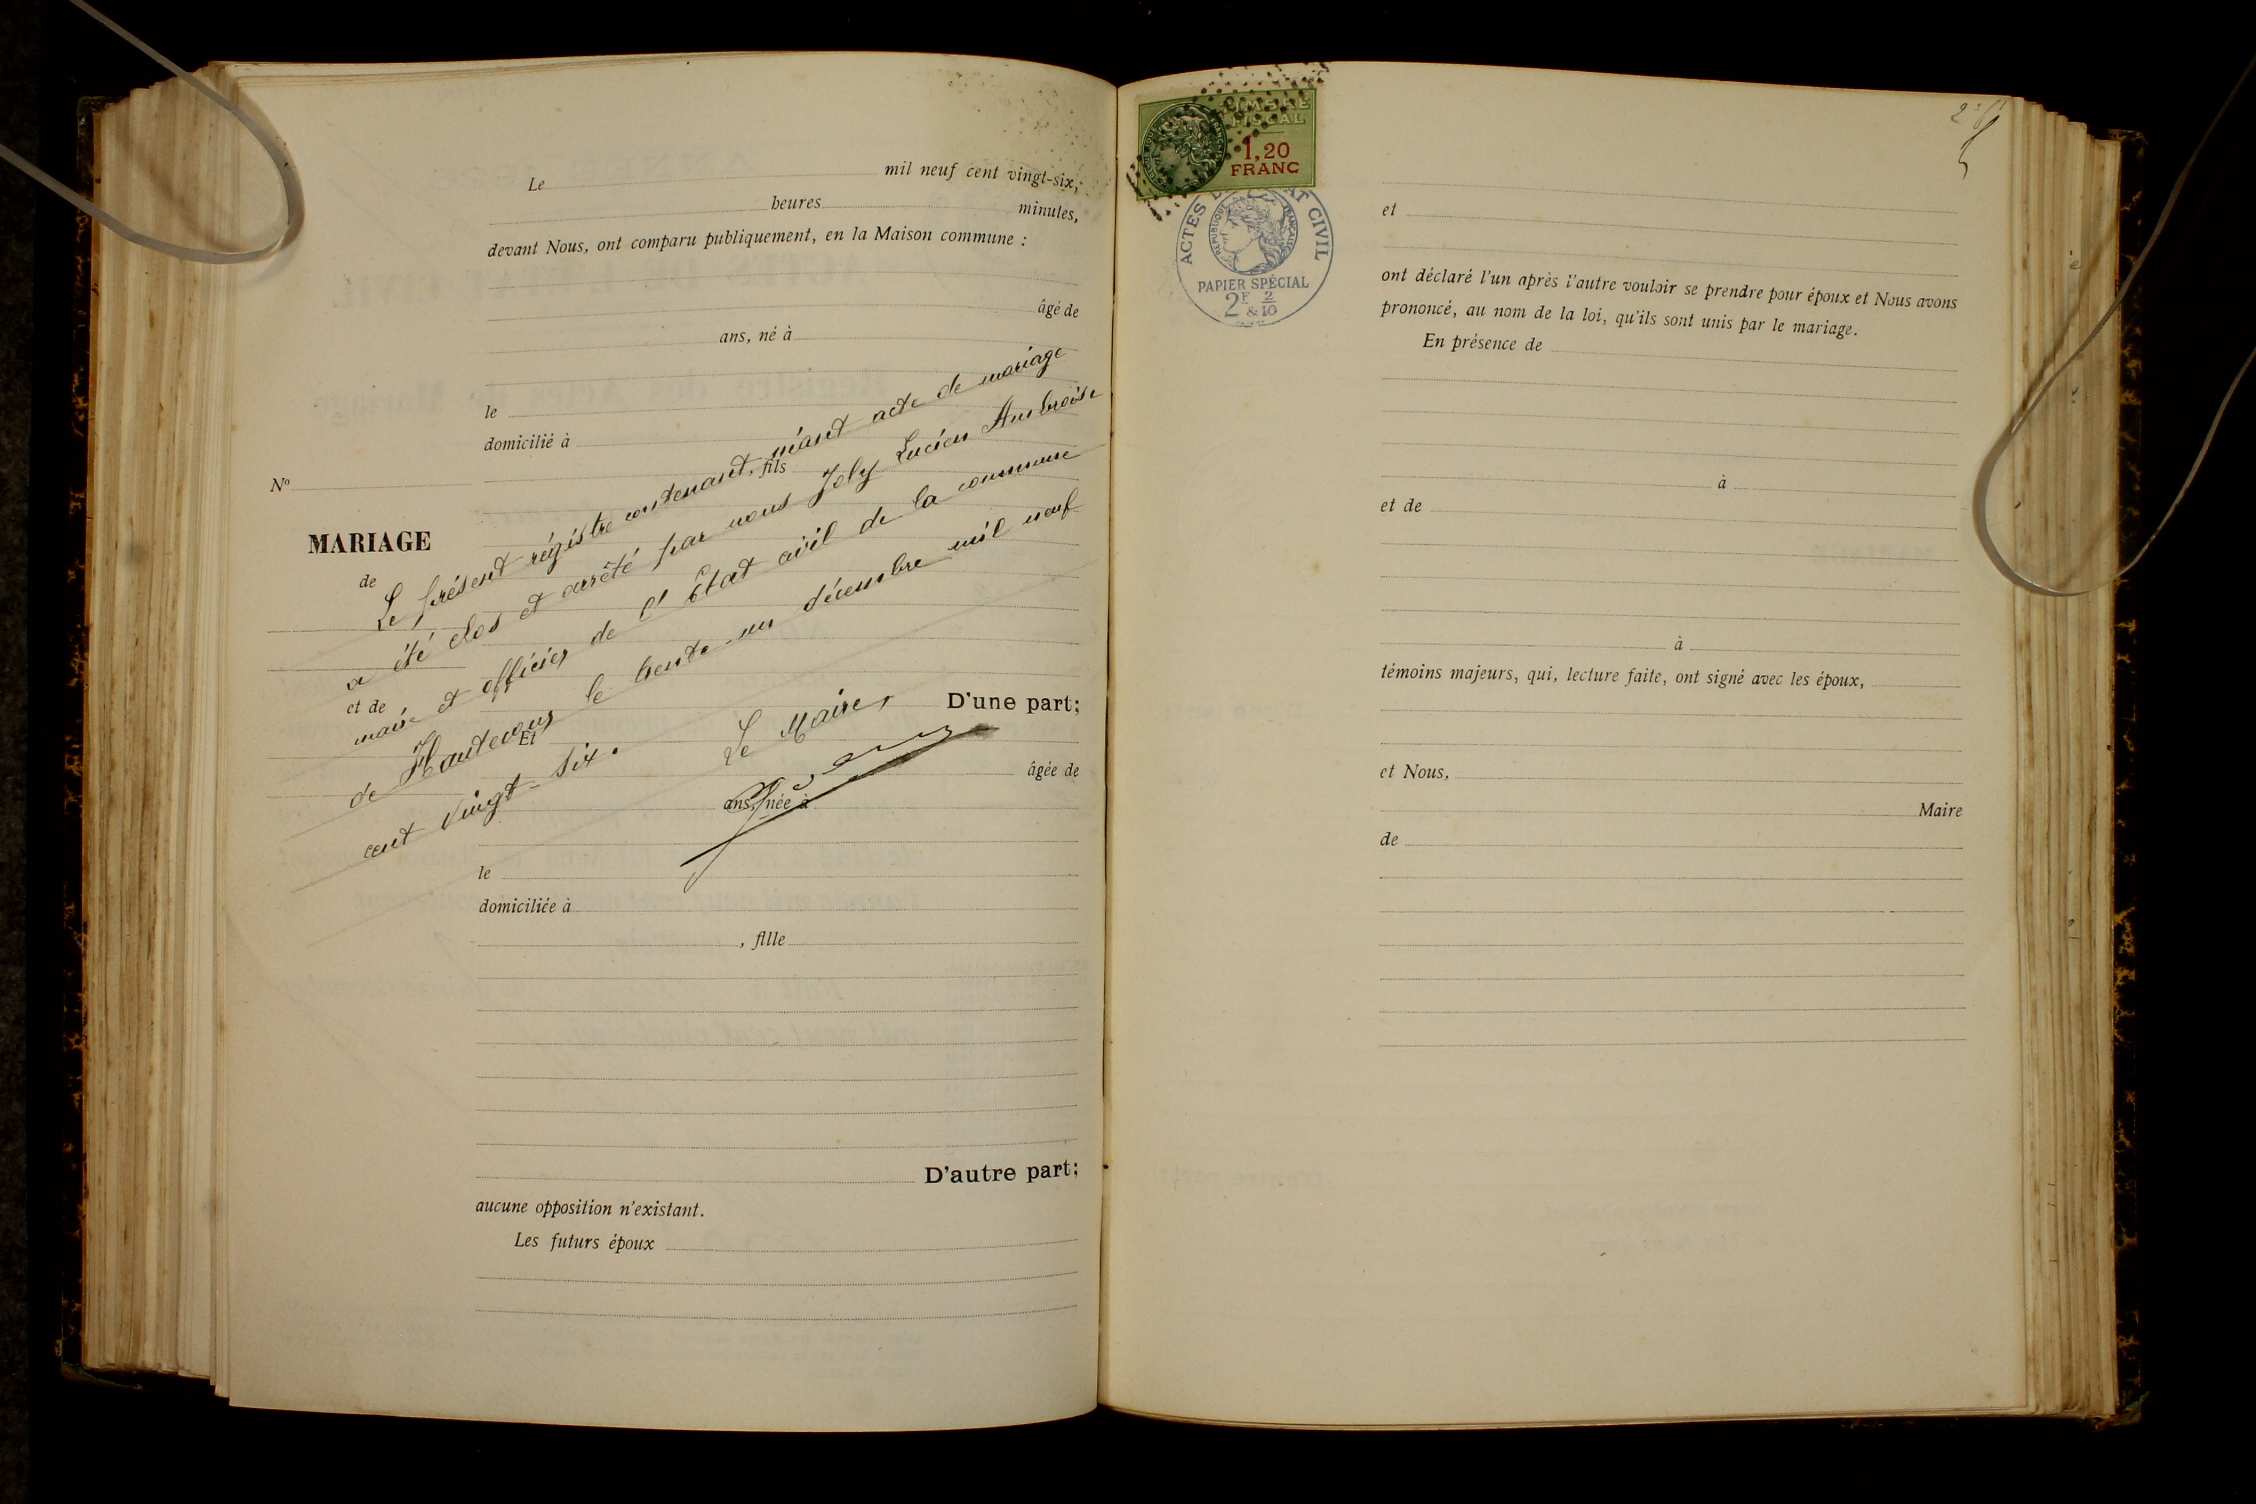 Le mil neuf cent vingt-six,
heures minutes,
devant Nous, ont comparu publiquement, en la Maison commune :
âgé de
ans, né à
le
domicilié à
, fils
No
MARIAGE
de
et de
Le présent régistre contenant, néant acte de mariage
a été clos et arrêté par nous Joly Lucien Ambroise
maire et officier de l'État civil de la commune
de Hautecour le trente-un décembre mil neuf
cent vingt-six.
Le Maire,
D'une part;
Et
âgée de
ans, née à
le
domiciliée à
, fille
D'autre part;
aucune opposition n'existant.
Les futurs époux
TIMBRE
FISCAL
1,20
FRANC
ACTES DE L'ÉTAT CIVIL
RÉPUBLIQUE FRANÇAISE
PAPIER SPÉCIAL
2F & 2/10
et
ont déclaré l'un après l'autre vouloir se prendre pour époux et Nous avons
prononcé, au nom de la loi, qu'ils sont unis par le mariage.
En présence de
à
et de
à
témoins majeurs, qui, lecture faite, ont signé avec les époux,
et Nous,
Maire
de